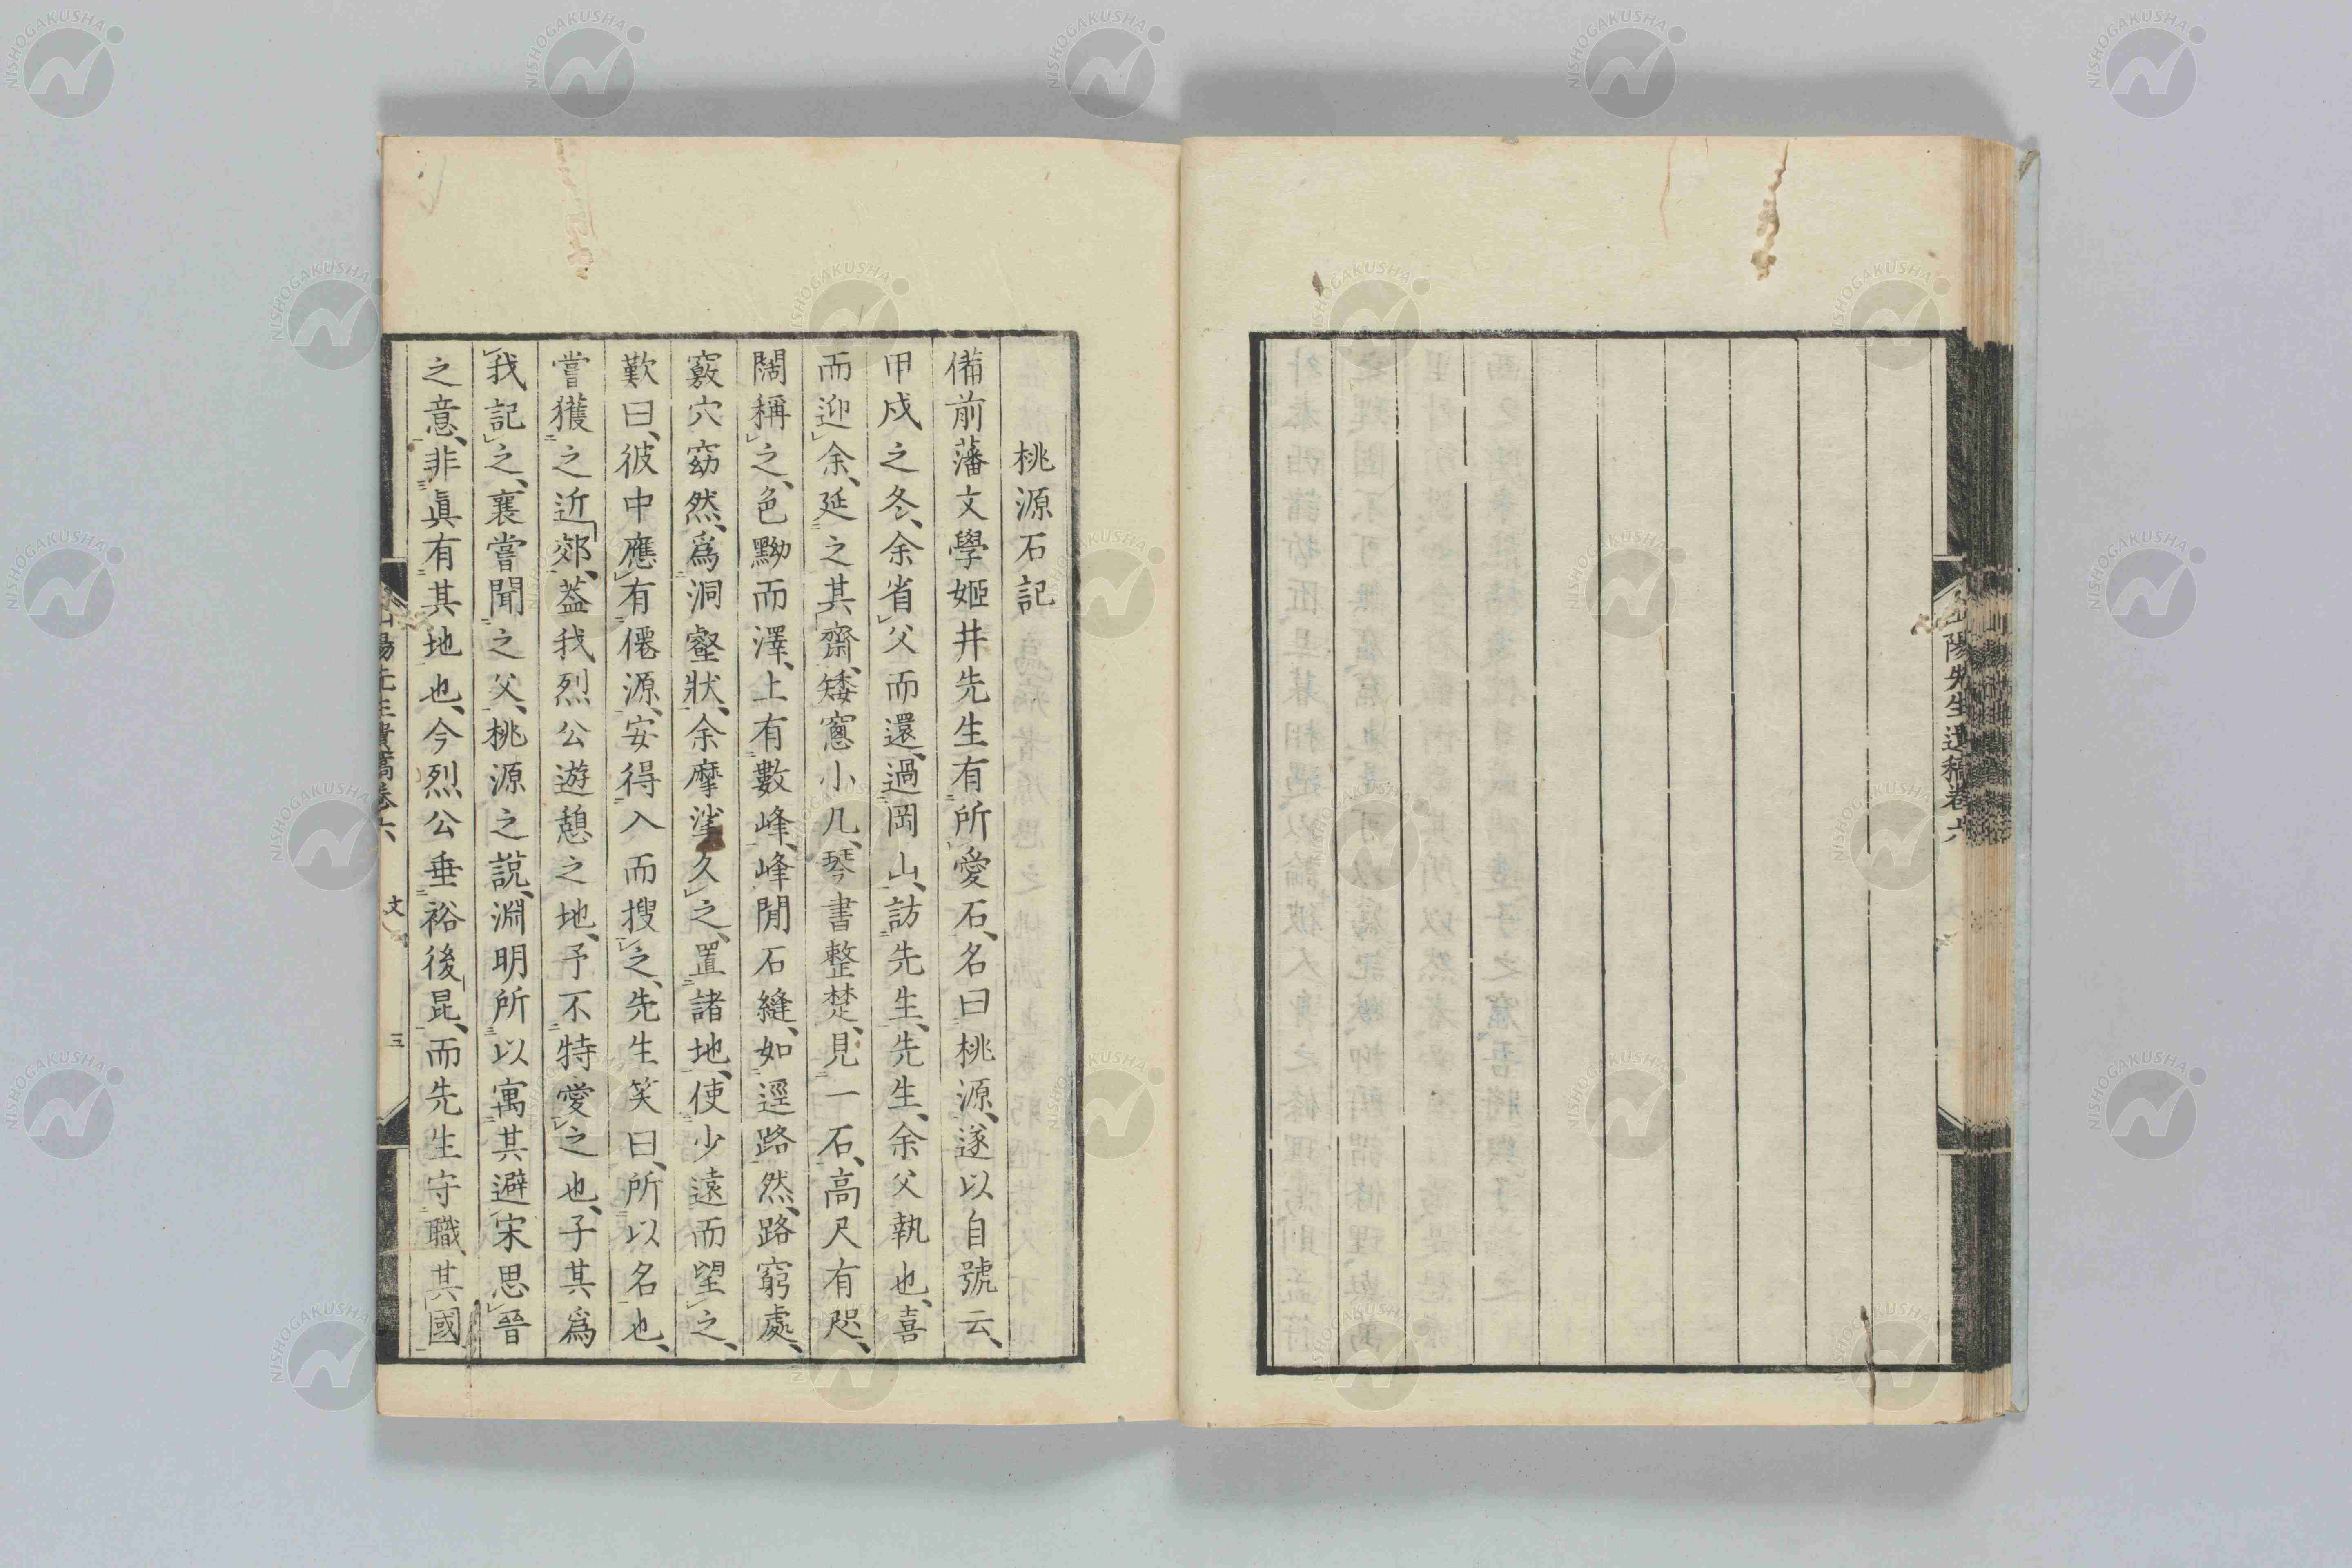 山陽先生遺稿卷六
桃源石記
備前藩文學姬井先生有所愛石、名曰桃源、遂以自號云、
甲戌之冬、余省父而還、過岡山、訪先生、先生、余父執也、喜
而迎余、延之其齋、矮窻小几、琴書整楚、見一石、高尺有咫、
闊稱之、色黝而澤、上有數峰、峰閒石縫、如逕路然、路窮處、
竅穴窈然、爲洞壑狀、余摩挲久之、置諸地、使少遠而望之、
歎曰、彼中應有僊源、安得入而搜之、先生笑曰、所以名也、
嘗獲之近郊、葢我烈公遊憩之地、予不特愛之也、子其爲
我記之、襄嘗聞之父、桃源之説、淵明所以寓其避宋思晉
之意、非眞有其地也、今烈公垂裕後昆、而先生守職其國
文
三
NISHOGAKUSHA